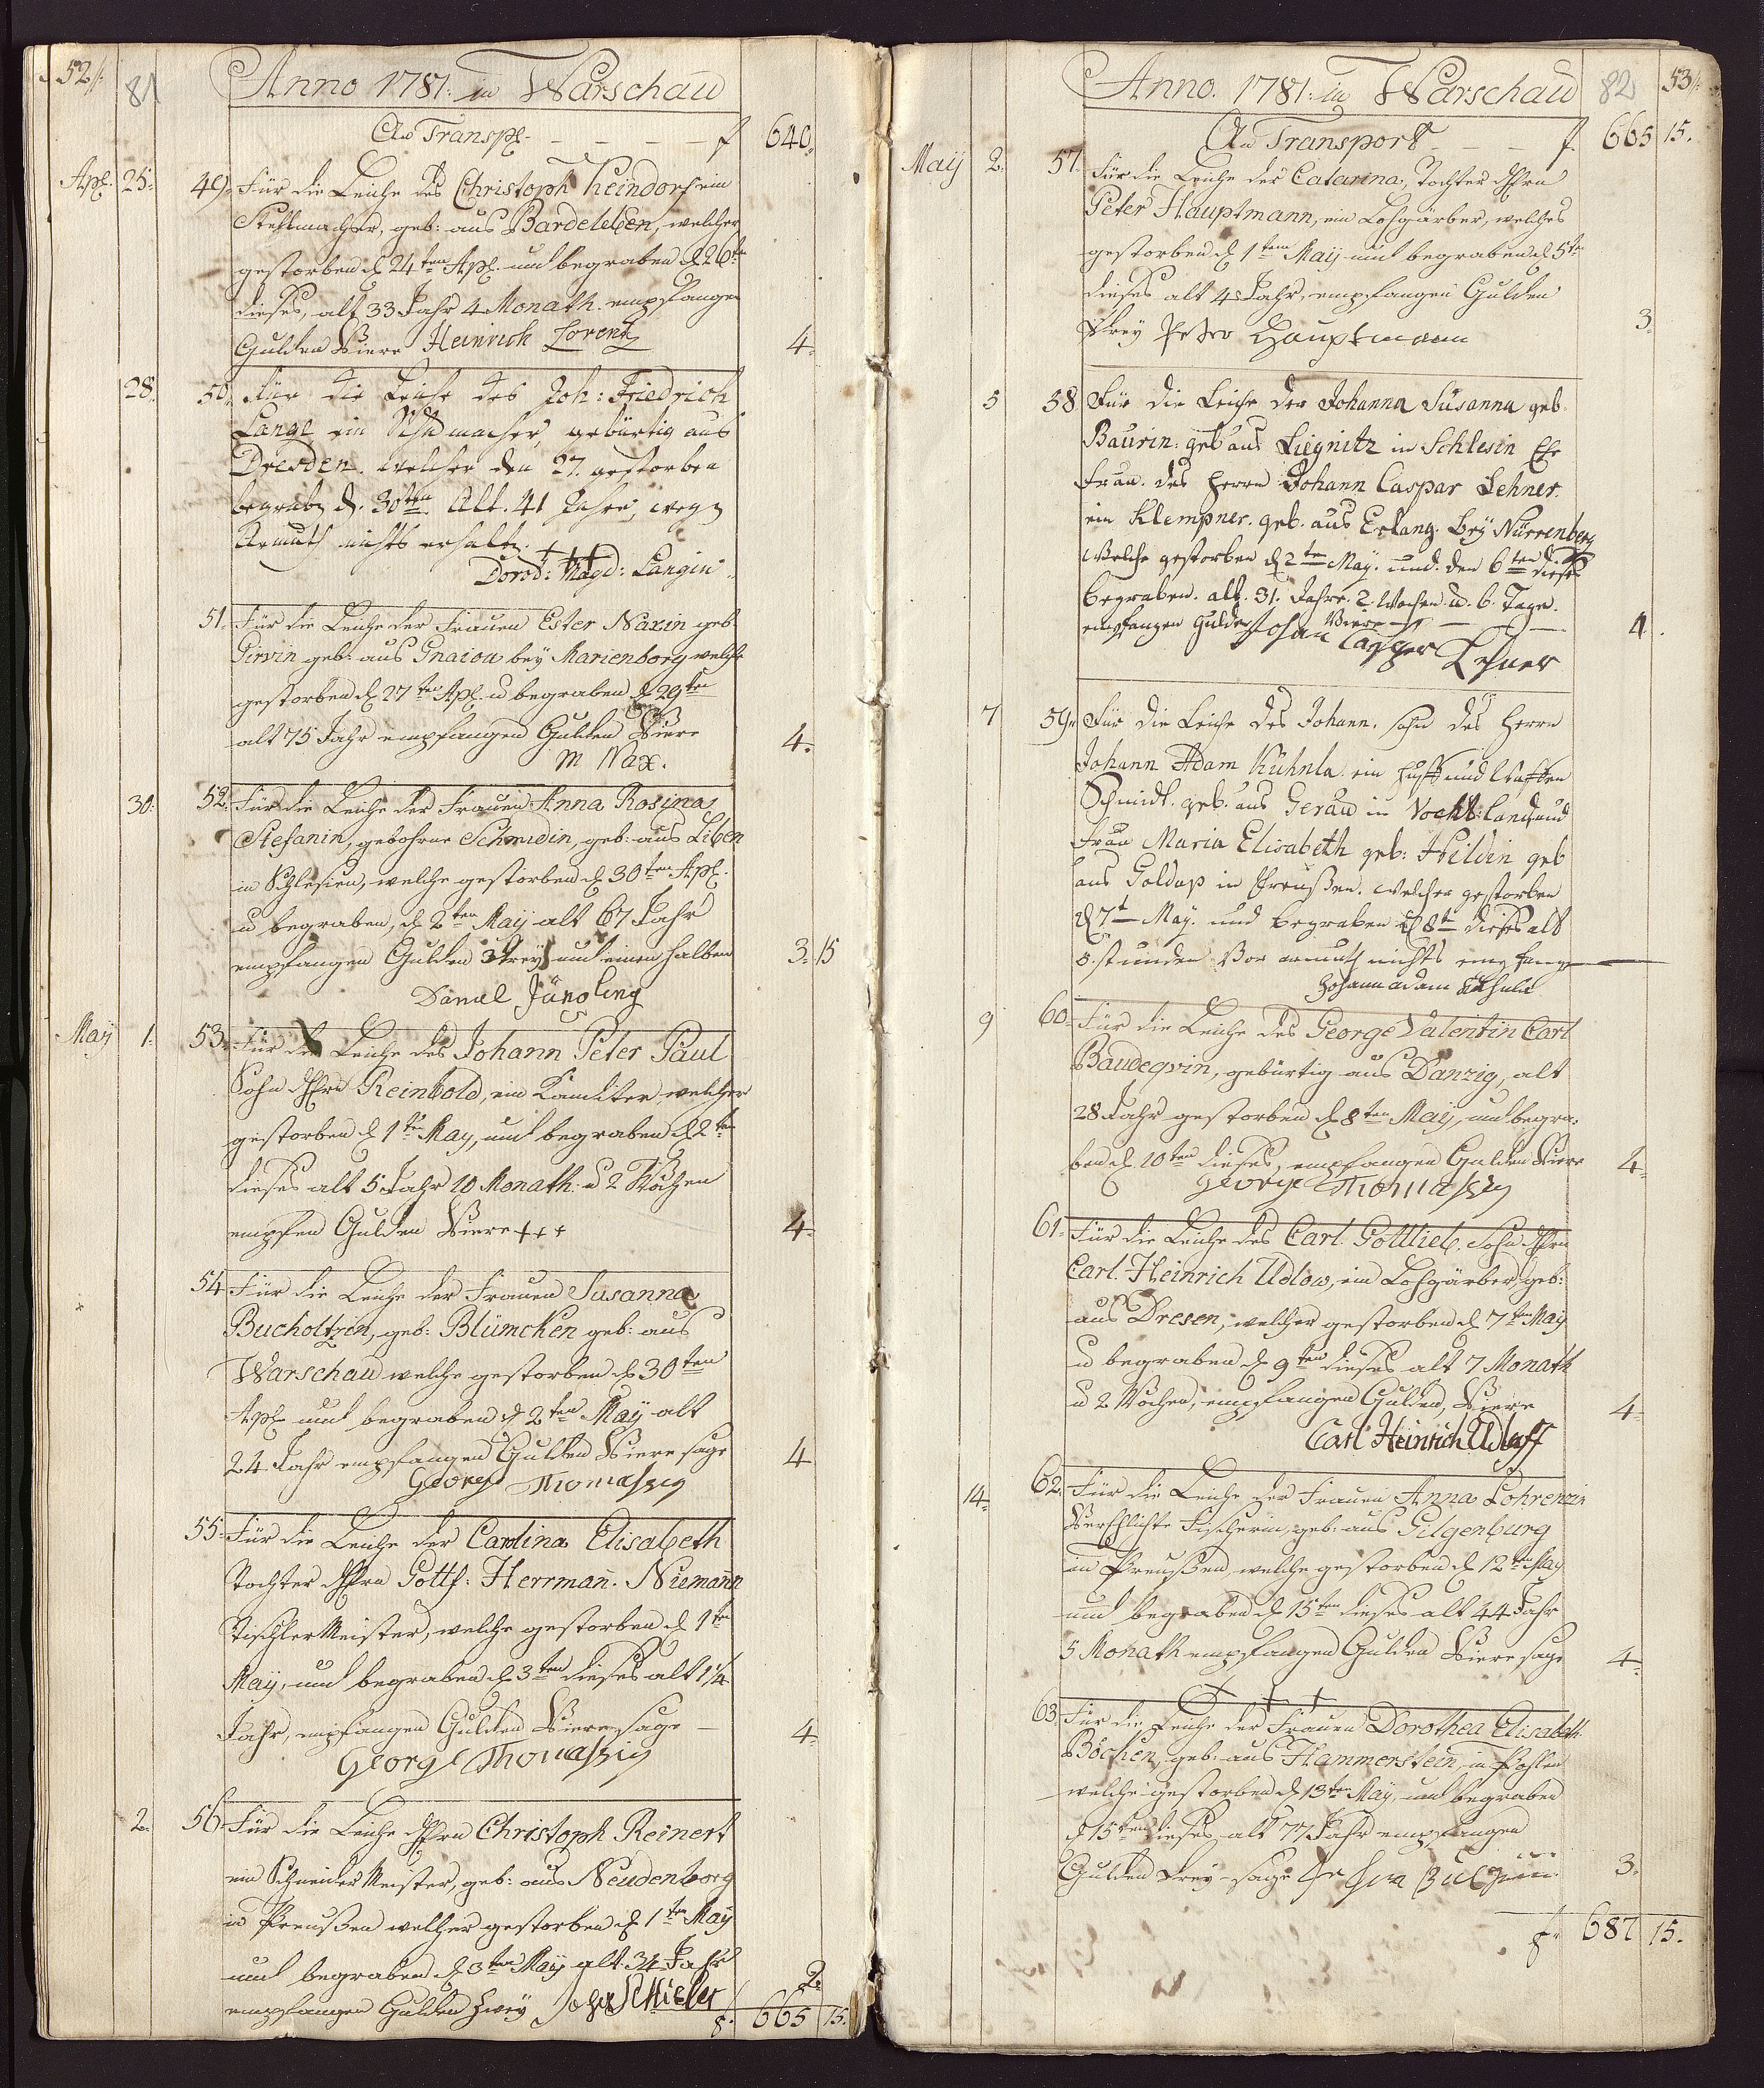 52/:
81
Anno 1781: in Warschau
An Transp: - - - - f 640.
Apl. 25. 49. Für die Leiche des Christoph Heindorf ein
Stehlmacher, geb: aus Bardeleben, welcher
gestorben d 24ten Apl. und begraben d 26tn
dieses, alt 33 Jahr 4 Monath. empfangen
Gulden Viere Heinrich Lorentz 4.
28. 50. Für die Leiche des Joh: Friedrich
Lange ein Schumacher, gebürtig aus
Dresden. welcher den 27. gestorben
begrabn d. 30ten. Alt. 41 Jahre, wegn
Armuth nichts erhaltn. +++
Dorod: Magd: Langin
51. Für die Leiche der Frauen Ester Naxin geb.
Pirvin geb: aus Gnaiou bey Marienborg welche
gestorben d 27ten Apl. u begraben d 29ten
alt 75 Jahr empfangen Gulden Viere 4.
M Nax.
30. 52. Für die Leiche der Frauen Anna Rosina
Stefanin, gebohrne Schmidin, geb: aus Liben
in Schlesien, welche gestorben d 30ten Apl.
u begraben, d 2ten May alt 67 Jahr
empfangen Gulden 3 Drey und einen halben 3. 15
Daniel
May 1. 53. Für die Leiche des Johann Peter Paul
Sohn d Hrn Reinbold, ein Kanditer welcher
gestorben d 1ten May, und begraben d 2ten
dieses alt 5 Jahr 10 Monath: u 2 Wochen
empfen Gulden Viere +++ 4.
54 Für die Leiche der Frauen Susanna
Bucholtzin, geb: Blümcken geb: aus
Warschau welche gestorben d 30ten
Apl. und begraben d 2ten May alt
24 Jahr empfangen Gulden Viere sage 4
George Thomassig
55. Für die Leiche der Carolina Elisabeth
Tochter d Hrn Gottf: Herrman. Niemann
Tischler Meister, welche gestorben d 1tn
May, und begraben d 3ten dieses alt 1 1/4
Jahr, empfangen Gulden Viere sage - 4.
George Thomassig
2. 56 Für die Leiche d Hrn Christoph Reinert
ein Schneider Meister, geb: aus Neudenborg
in Preußen welcher gestorben d 1ten May
und begraben d 3ten May alt 34 Jahr
empfangen Gulden Zwey Schieler 2.
f. 665 15.
82
53/:
Anno. 1781: in Warschau
An Transport - - - f. 665 15.
May 2. 57. Für die Leiche der Catarina, Tochter d Hrn
Peter Hauptmann, ein Lohgärber, welches
gestorben d 1ten May und begraben d 5tn
dieses alt 4 Jahr, empfangen Gulden
Drey Peter Hauptmann 3.
5 58 Für die Leiche der Johanna Susanna geb.
Baurin: geb aus Liegnitz in Schlesin Ehe
Frau. des Herrn Johann Caspar Lehner.
ein Klempner. geb. aus Erlang. bey Nürrenberg
Welche gestorben d 2ten May. und. den 6ten dieses
begraben. alt. 31. Jahre. 2. Wochen. u. 6. Tage.
empfangen Gulden Viere - 4.
Johan Casper Lehner
7 59. Für die Leiche des Johann. sohn des Herrn
Johann Adam Kühnla. ein Huff und Waffen
Schmidt. geb. aus Gerau in Vocht: Land und
Frau Maria Elisabeth geb: Hildin geb
aus Goldap in Preußen. welcher gestorben
d 7t May. und begraben d 8tn dieses alt
8. stunden Vor armuth nichts empfangen
Johann adam
9 60. Für die Leiche des George Valentin Carl
Baudeqvin, gebürtig aus Danzig, alt
28 Jahr gestorben d 8ten May, und begra:
ben d 10ten dieses, empfangen Gulden Viere 4.
George Thomassig
61. Für die Leiche des Carl Gottlieb. Sohn d Hrn
Carl. Heinrich Udlow, ein Lohgärber, geb:
aus Dresen, welcher gestorben d 7ten May
u begraben d 9ten dieses alt 7 Monath
u 2 Wochen, empfangen Gulden, Viere 4.
Carl Heinrich Udloff
14. 62. Für die Leiche der Frauen Anna Lohrenzin
Verehlichte Fischerin, geb: aus Gilgenburg
in Preußen welche gestorben d 12ten May
und begraben d 15ten dieses alt 44 Jahr
5 Monath empfangen Gulden Viere sage 4.
+ + +
63. Für die Leiche der Frauen Dorothea Elisabeth
Böcken, geb: aus Hammerstein, in Pohlen
welche gestorben d 13ten May, und begraben
d 15ten dieses alt 77 Jahr empfangen
Gulden Drey sage 3.
f. 687 15.